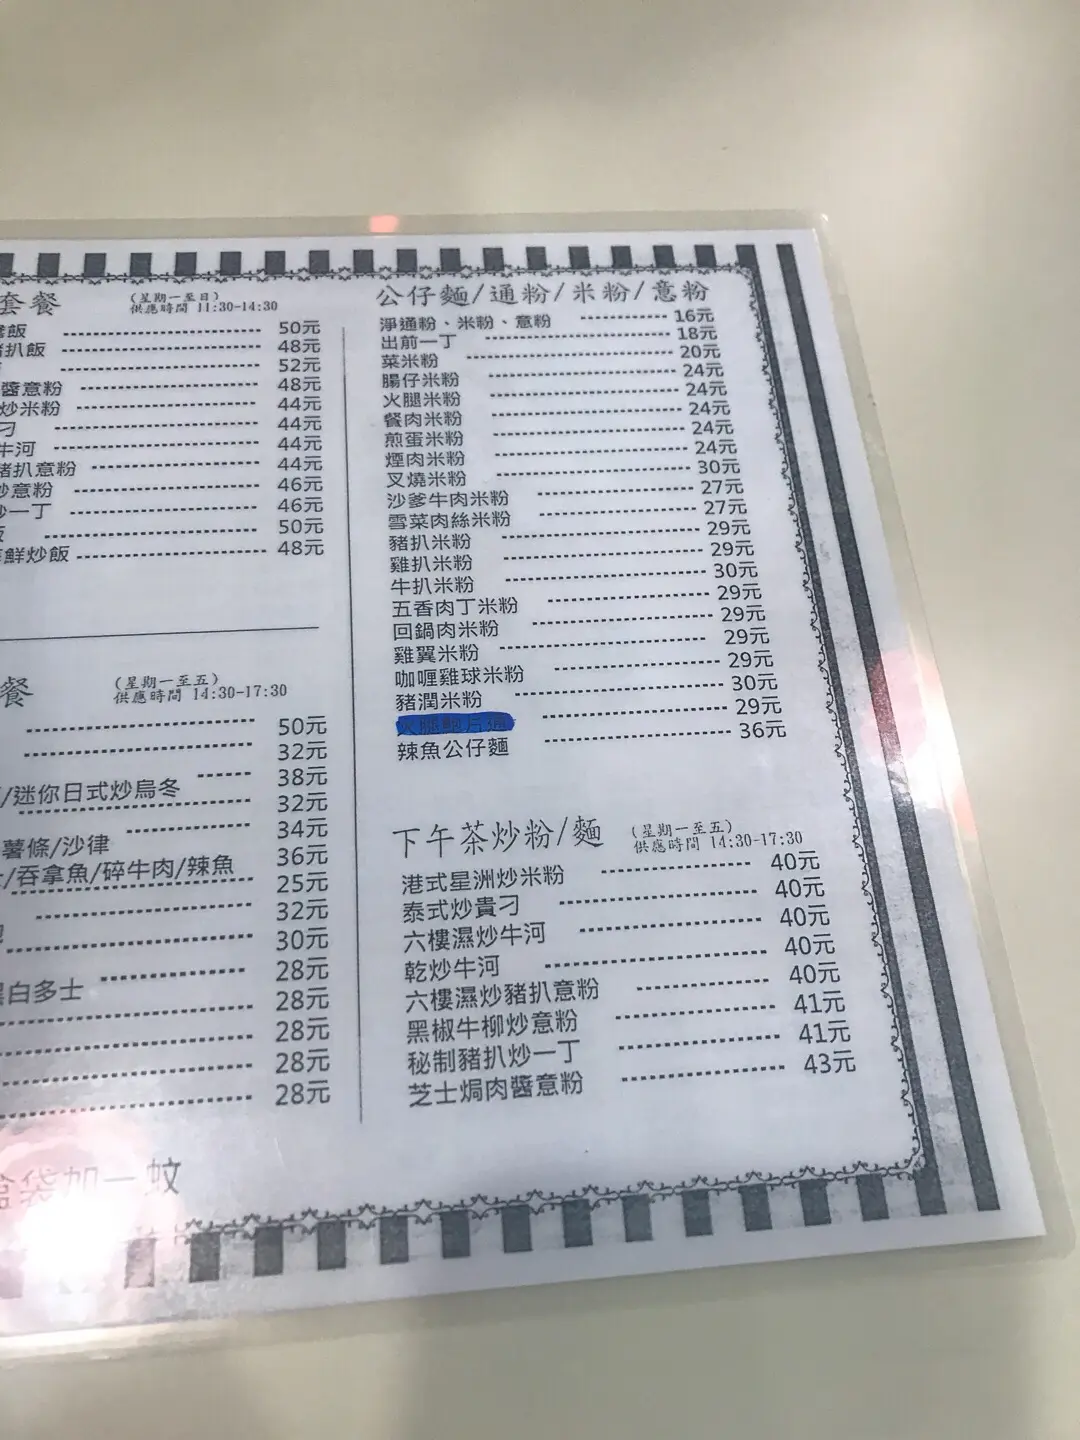 套餐 (星期一至日)
供應時間 11:30-14:30
飯 50元
扒飯 48元
52元
醬意粉 48元
炒米粉 44元
刁 44元
牛河 44元
豬扒意粉 44元
炒意粉 46元
一丁 46元
飯 50元
鮮炒飯 48元
餐 (星期一至五)
供應時間 14:30-17:30
50元
32元
38元
/迷你日式炒烏冬 32元
34元
薯條/沙律 36元
/吞拿魚/碎牛肉/辣魚 25元
32元
30元
28元
白多士 28元
28元
28元
28元
袋加一蚊
公仔麵/通粉/米粉/意粉
淨通粉、米粉、意粉 16元
出前一丁 18元
菜米粉 20元
腸仔米粉 24元
火腿米粉 24元
餐肉米粉 24元
煎蛋米粉 24元
煙肉米粉 24元
叉燒米粉 30元
沙爹牛肉米粉 27元
雪菜肉絲米粉 27元
豬扒米粉 29元
雞扒米粉 29元
牛扒米粉 30元
五香肉丁米粉 29元
回鍋肉米粉 29元
雞翼米粉 29元
咖喱雞球米粉 29元
豬潤米粉 30元
29元
辣魚公仔麵 36元
下午茶炒粉/麵 (星期一至五)
供應時間 14:30-17:30
港式星洲炒米粉 40元
泰式炒貴刁 40元
六樓濕炒牛河 40元
乾炒牛河 40元
六樓濕炒豬扒意粉 40元
黑椒牛柳炒意粉 41元
秘制豬扒炒一丁 41元
芝士焗肉醬意粉 43元